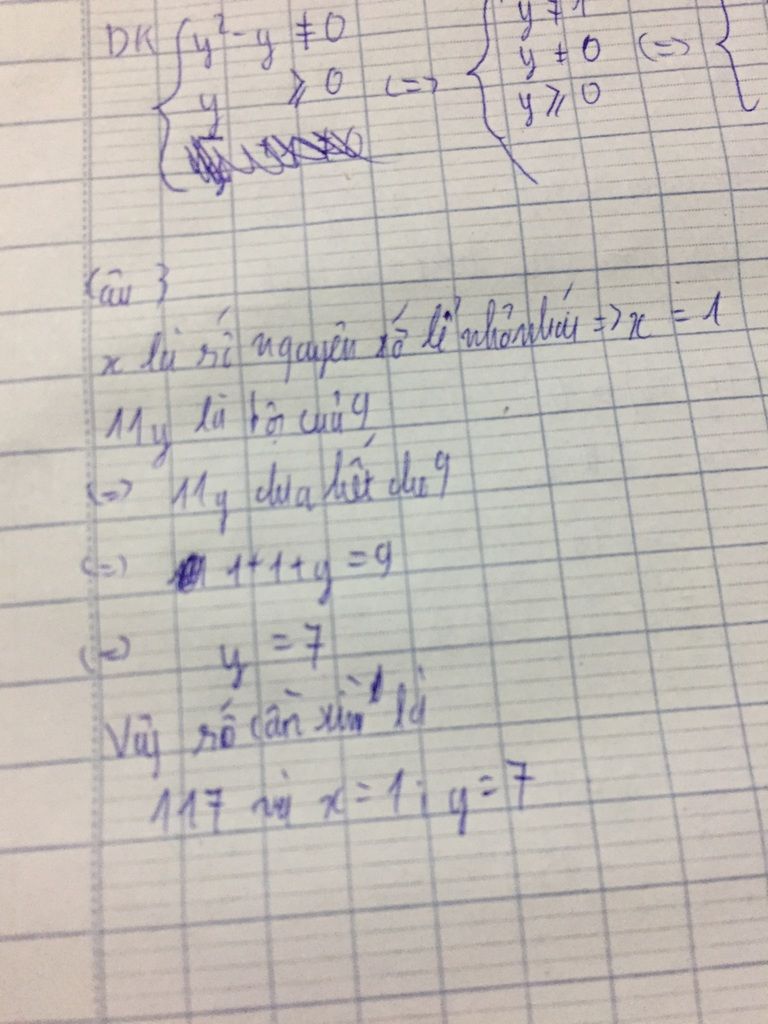 ĐK { y² - y ≠ 0 (=) { y ≠ 1
y ≥ 0 y ≠ 0 (=) {
y ≥ 0
Câu 3
x là số nguyên số lẻ nhỏ nhất => x = 1
11y là bội của 9
(=) 11y chia hết cho 9
(=) 1+1+y = 9
(=) y = 7
Vậy số cần tìm là
117 và x = 1; y = 7